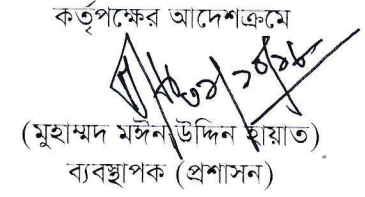 কর্তৃপক্ষের আদেশক্রমে
(মুহাম্মদ মঈন উদ্দিন হায়াত)
ব্যবস্থাপক (প্রশাসন)